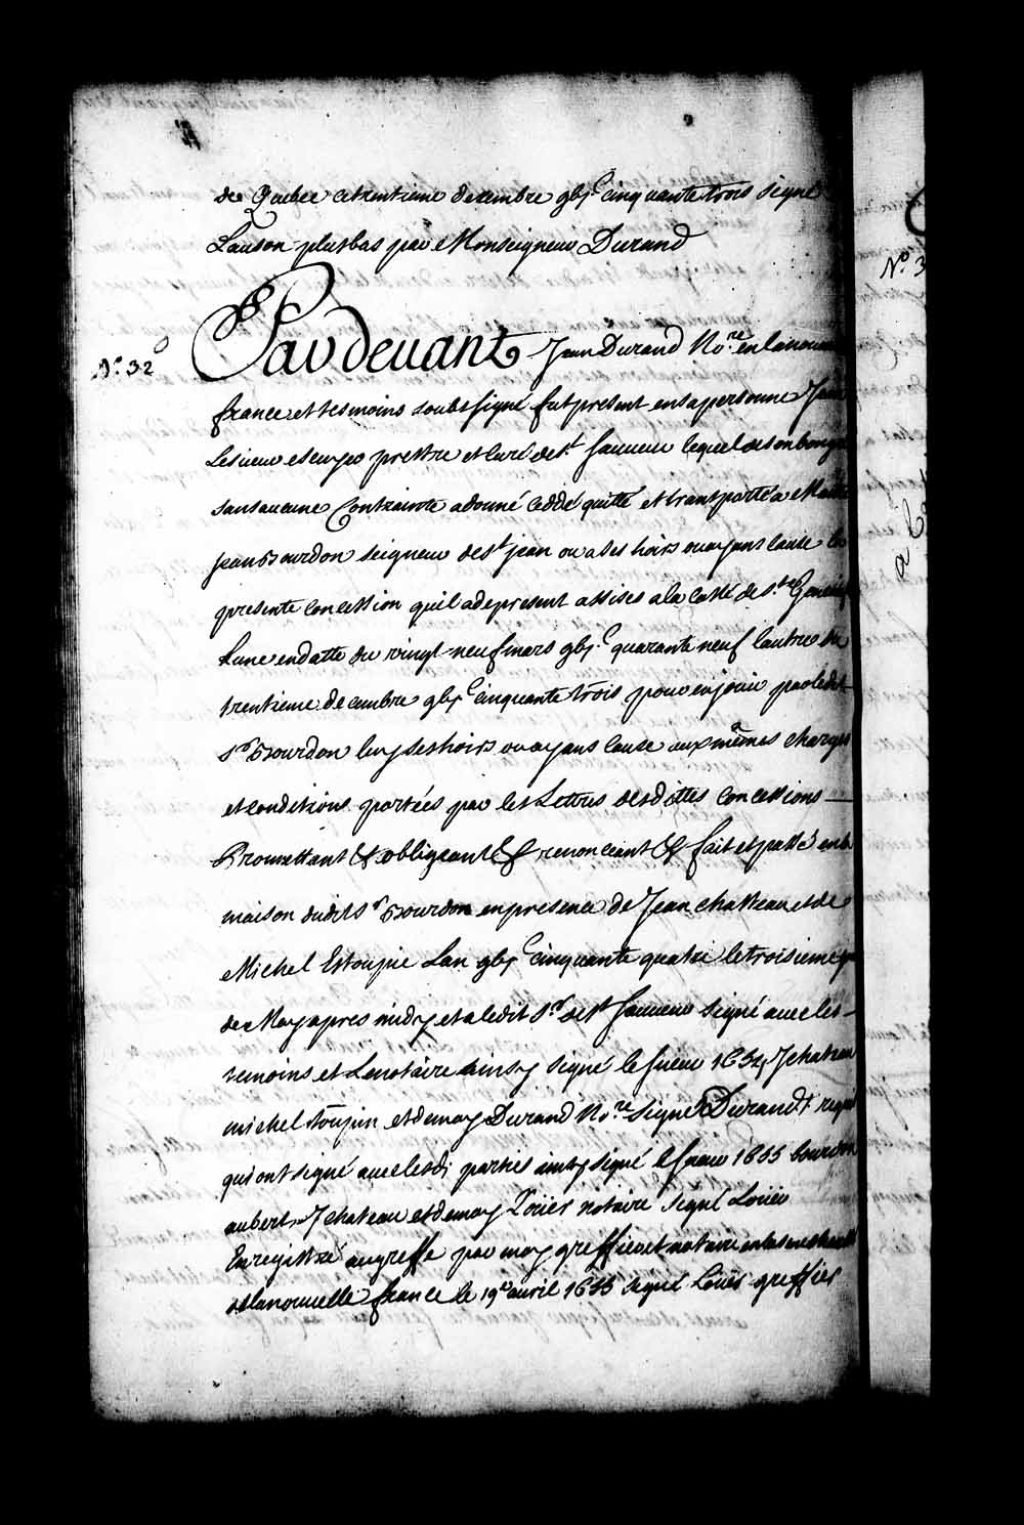 de Quebec cetrentieme decembre gbjᶜ cinquante trois signé
Lauson plusbas par Monseigneur Durand
Nº 32
Pardevant Jean Durand No.re en lanouvelle
france et tesmoins soubsigné fut present ensapersonne Jean
Lesueur escuyer prestre et curé de St. Sauveur lequel desonbongré
sansaucune Contrainte adonné ceddé quitté et transporté a Maitre
jean Bourdon seigneur de St jean ou a ses hoirs ou ayans cause la
presente concession quil adepresent assises ala costé de Ste Genevieve
Lune endatte du vingt-neuf mars gbjᶜ quarante neuf lautre du
trentieme decembre gbjᶜ cinquante trois pour enjouir parledit
Sr Bourdon luy ses hoirs ou ayans cause aux mêmes charges
et conditions portées par les Lettres desdittes concessions
Promettant & obligeant & renonceant & fait et passé en la
maison dudit Sr Bourdon enpresence de Jean chatteau et de
Michel Estoupie Lan gbjᶜ cinquante quatre le troisieme
de May apres midy et a ledit Sr. de St Sauveur signé avec les
temoins et Lenotaire ainsy signé le sueur 1654, J chateau
michel toupin et demoy Durand No.re Signé Durand requis
qui ont signé avec lesd: parties ainsy signé le sueur 1655 bourdon
aubert, J chateau et demoy Roüer notaire signé Loüer
Enregistré augreffe par moy greffier et notaire
delanouvelle france le 19e avril 1655 signé Loüer greffier
Nº 3